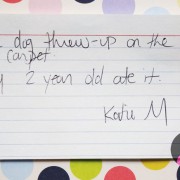 dog threw-up on the
carpet.
2 year old ate it.
Katie M